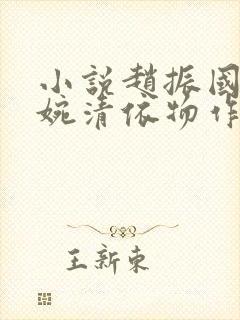 小説趙振國
婉清依物作
王新東